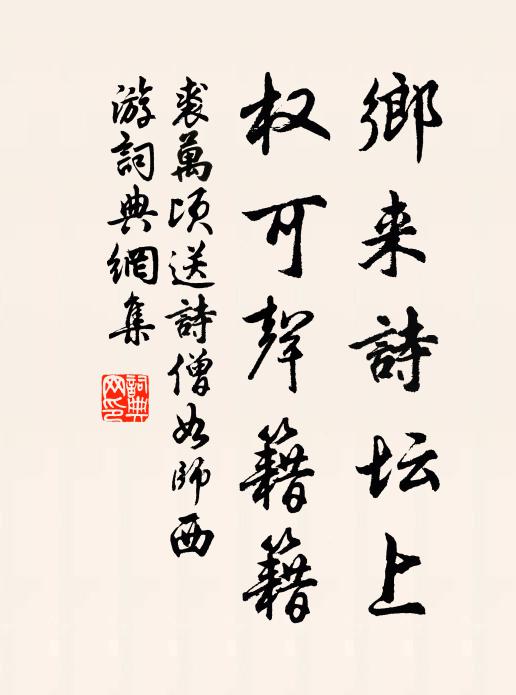 鄉来詩坛上
权可聲籍籍
裘萬頃送詩僧如師西
游詞典網集
詞典
网印